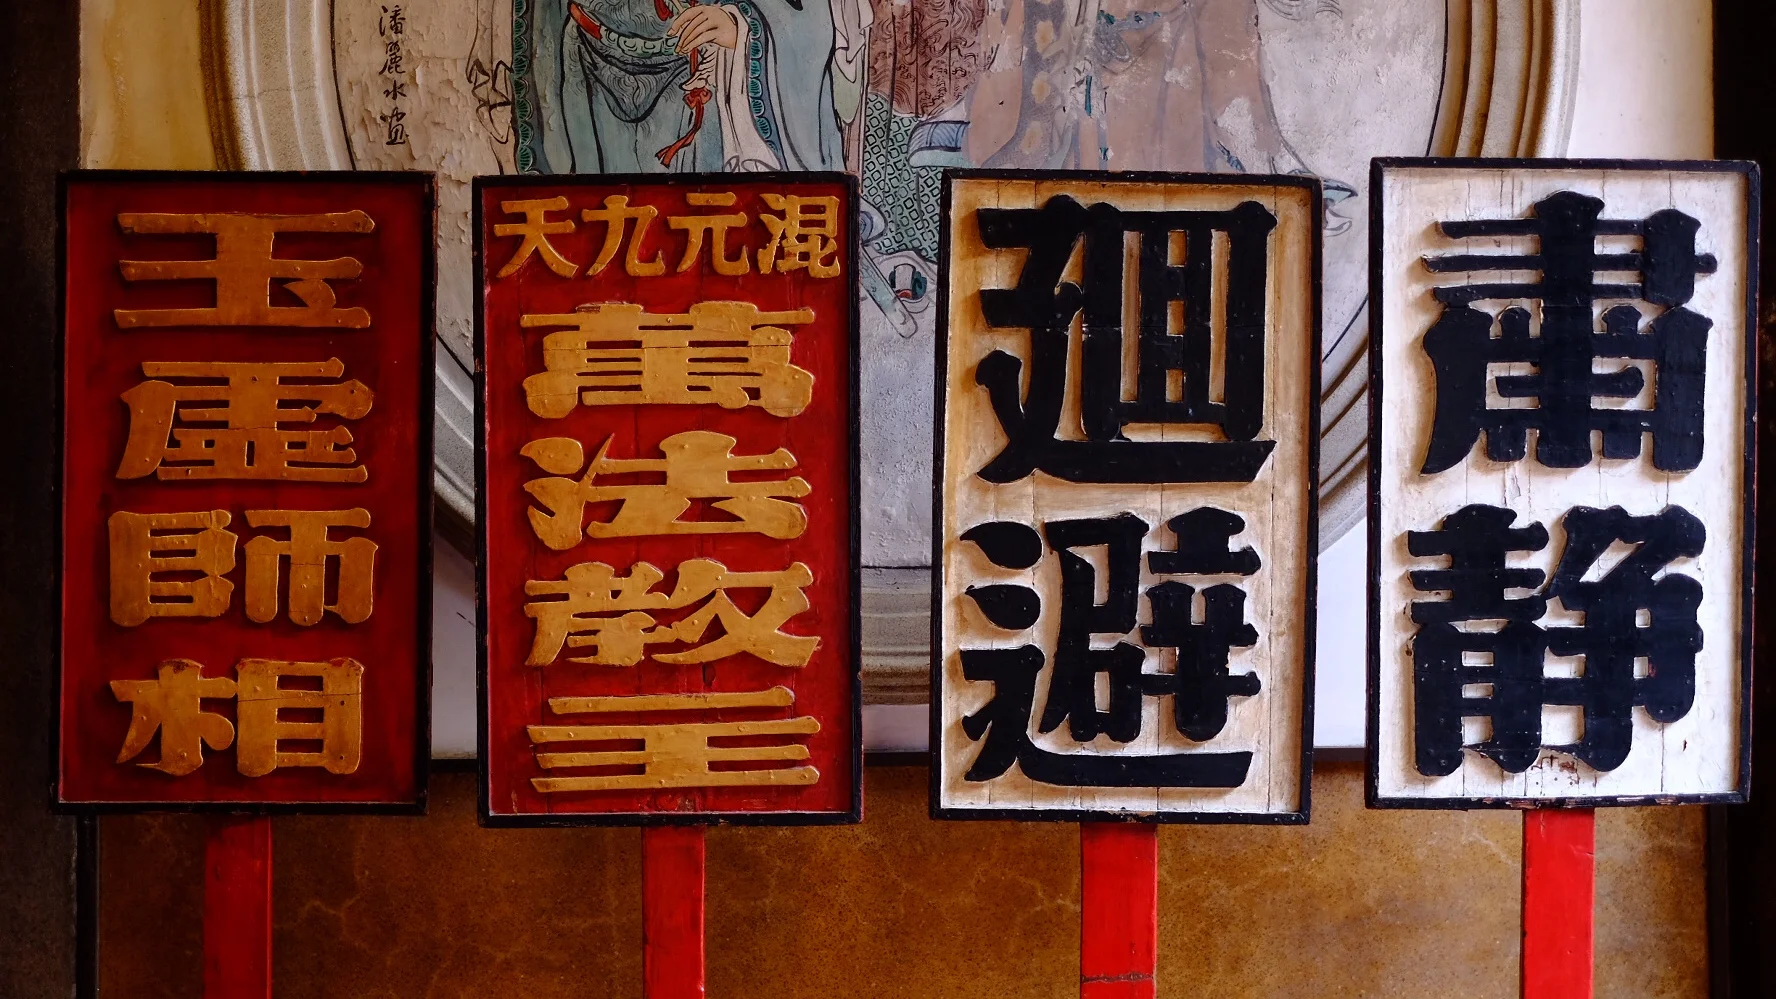 肅静
廻避
混元九天
萬法教主
玉虛師相
潘麗水畫